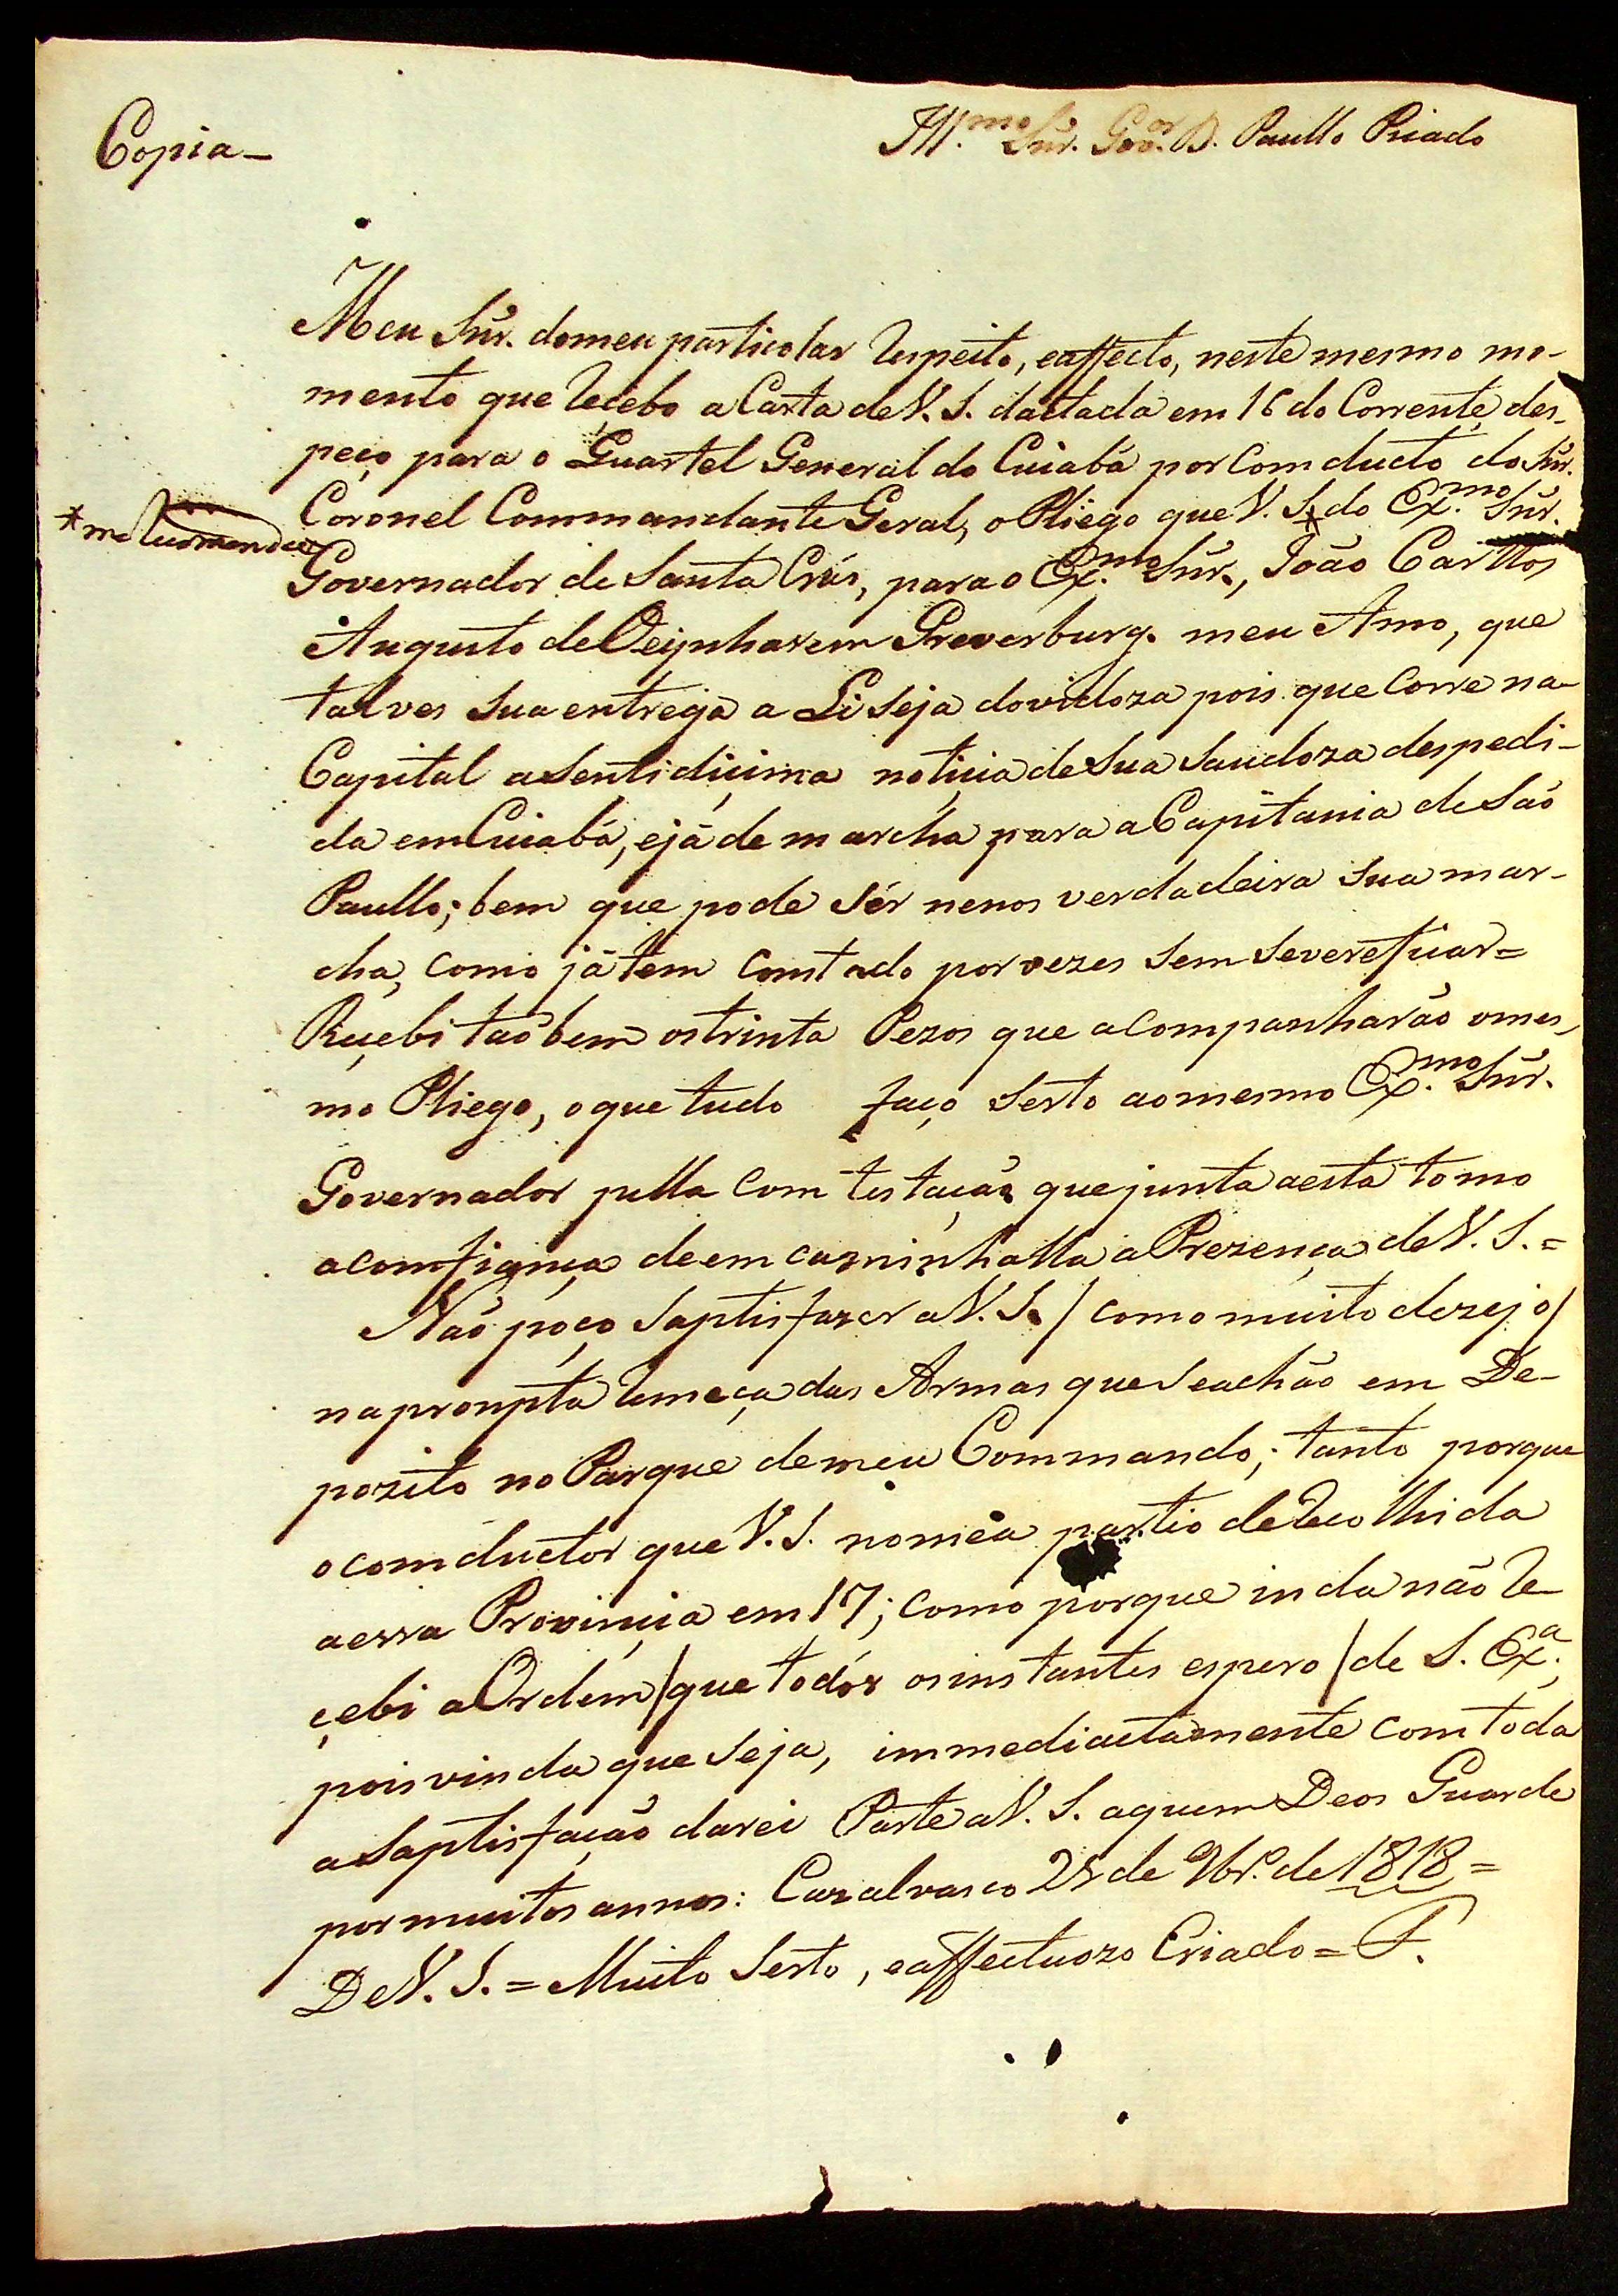 Copia_
Ill.mo Snr. Gov.or D. Paullo Priado
Meu Snr. domeu particolar Respeito, eaffecto, neste mesmo mo-
mento que Recebo a Carta de V. S. dactada em 16 do Corrente, des-
peço para o Quartel General do Cuiabá por Comducto do Snr.
Coronel Commandante Geral, o Pliego que V. S. * do Ex.mo Snr.
* me Recomenda
Governador de Santa Crús, para o Ex.mo Snr., João Carllos
Augusto de Oeijnhazem Greverburg. meu Amo, que
talves sua entrega a Si seja dovidoza pois que Corre na
Capital a Sentidiçima notiçia de Sua Saudoza despedi-
da em Cuiabá, ejá de marcha para a Capitania de São
Paullo; bem que pode sér menos verdadeira sua mar-
cha, como já tem Comtado por vezes Sem Severefiçar=
Reçebi taõbem ostrinta Pezos que aCompanharão omes-
mo Pliego, oque tudo faço Serto aomesmo Ex.mo Snr.
Governador pella Comtestação que junta aesta tomo
aComfiança deemcaminhalla a Prezença de V. S.=
Não poço Saptisfazer a V. S. / como muito dezejo /
napronpta Remeça das Armas que Seachão em De-
pozito no Parque demeu Commando; tanto porque
ocomductor que V. S. noméa partio deRecolhida
aessa Provinçia em 17; como porque inda não Re-
çebi a Ordem / que todos osinstantes espero / de S. Ex.a,
pois vinda que Seja, immediactamente com toda
a Saptisfação darei Parte a V. S. aquem Deos Guarde
por muitos annos: Cazalvasco 28 de 9br.o de 1818=
De V. S.= Muito Serto, eaffectuozo Criado= F.